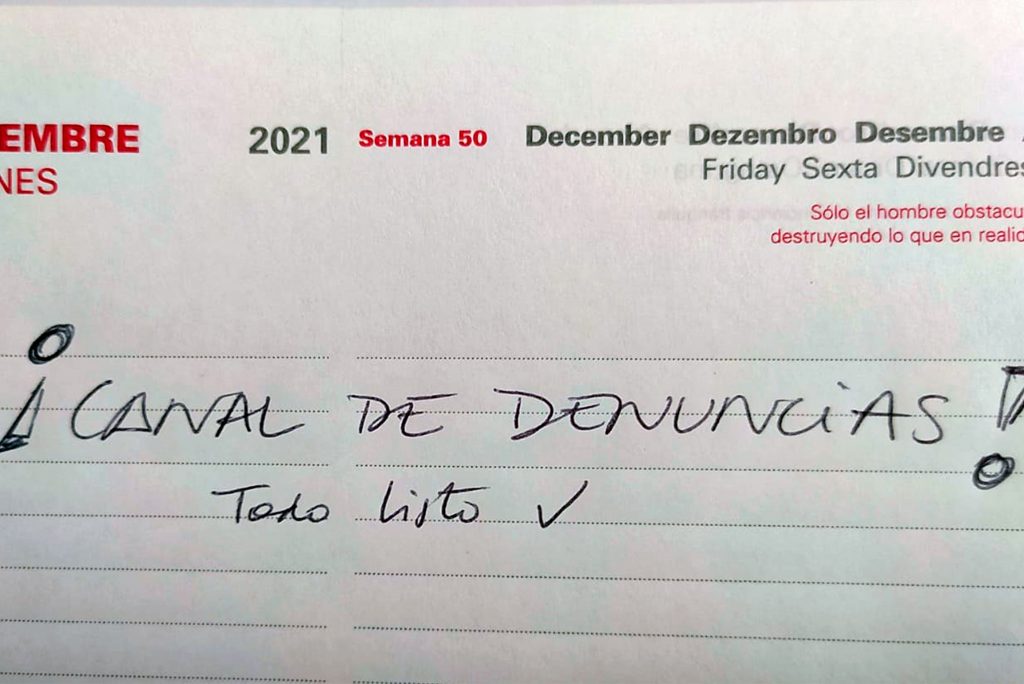 EMBRE 2021 Semana 50 December Dezembro Desembre
NES Friday Sexta Divendres
Sólo el hombre obstacu
destruyendo lo que en realid
¡CANAL DE DENUNCIAS!
Todo listo ✓